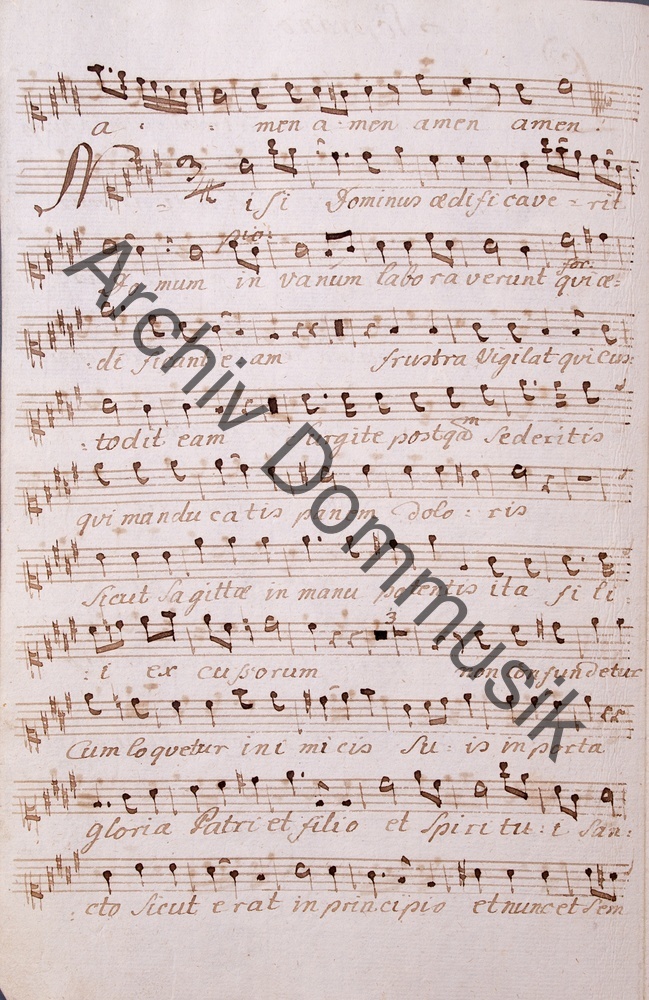 a : : men a-men amen amen.
Nisi Dominus ædificave = rit
pio:
Do mum in vanum laboraverunt qui æ=
for:
:di ficant e am frustra Vigilat qui cus:
:todit eam surgite postqā Sederitis
qui manducatis panem dolo : ris
Sicut Sagittæ in manu potentis ita fi li
3
: i ex cussorum non confundetur
Cum loquetur ini micis Su : is in porta
gloria Patri et filio et Spiritu : i San:
:cto Sicut erat in principio et nunc et Sem
Archiv Dommusik